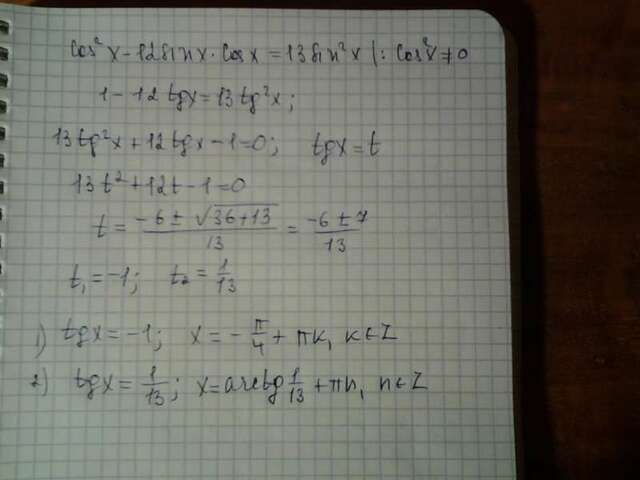 cos²x - 12sinx·cosx = 13sin²x |: cos²x ≠ 0
1 - 12tgx = 13tg²x;
13tg²x + 12tgx - 1 = 0; tgx = t
13t² + 12t - 1 = 0
t = (-6 ± √(36+13))/13 = (-6 ± 7)/13
t₁ = -1; t₂ = 1/13
1) tgx = -1; x = -π/4 + πk, k∈Z
2) tgx = 1/13; x = arctg 1/13 + πn, n∈Z